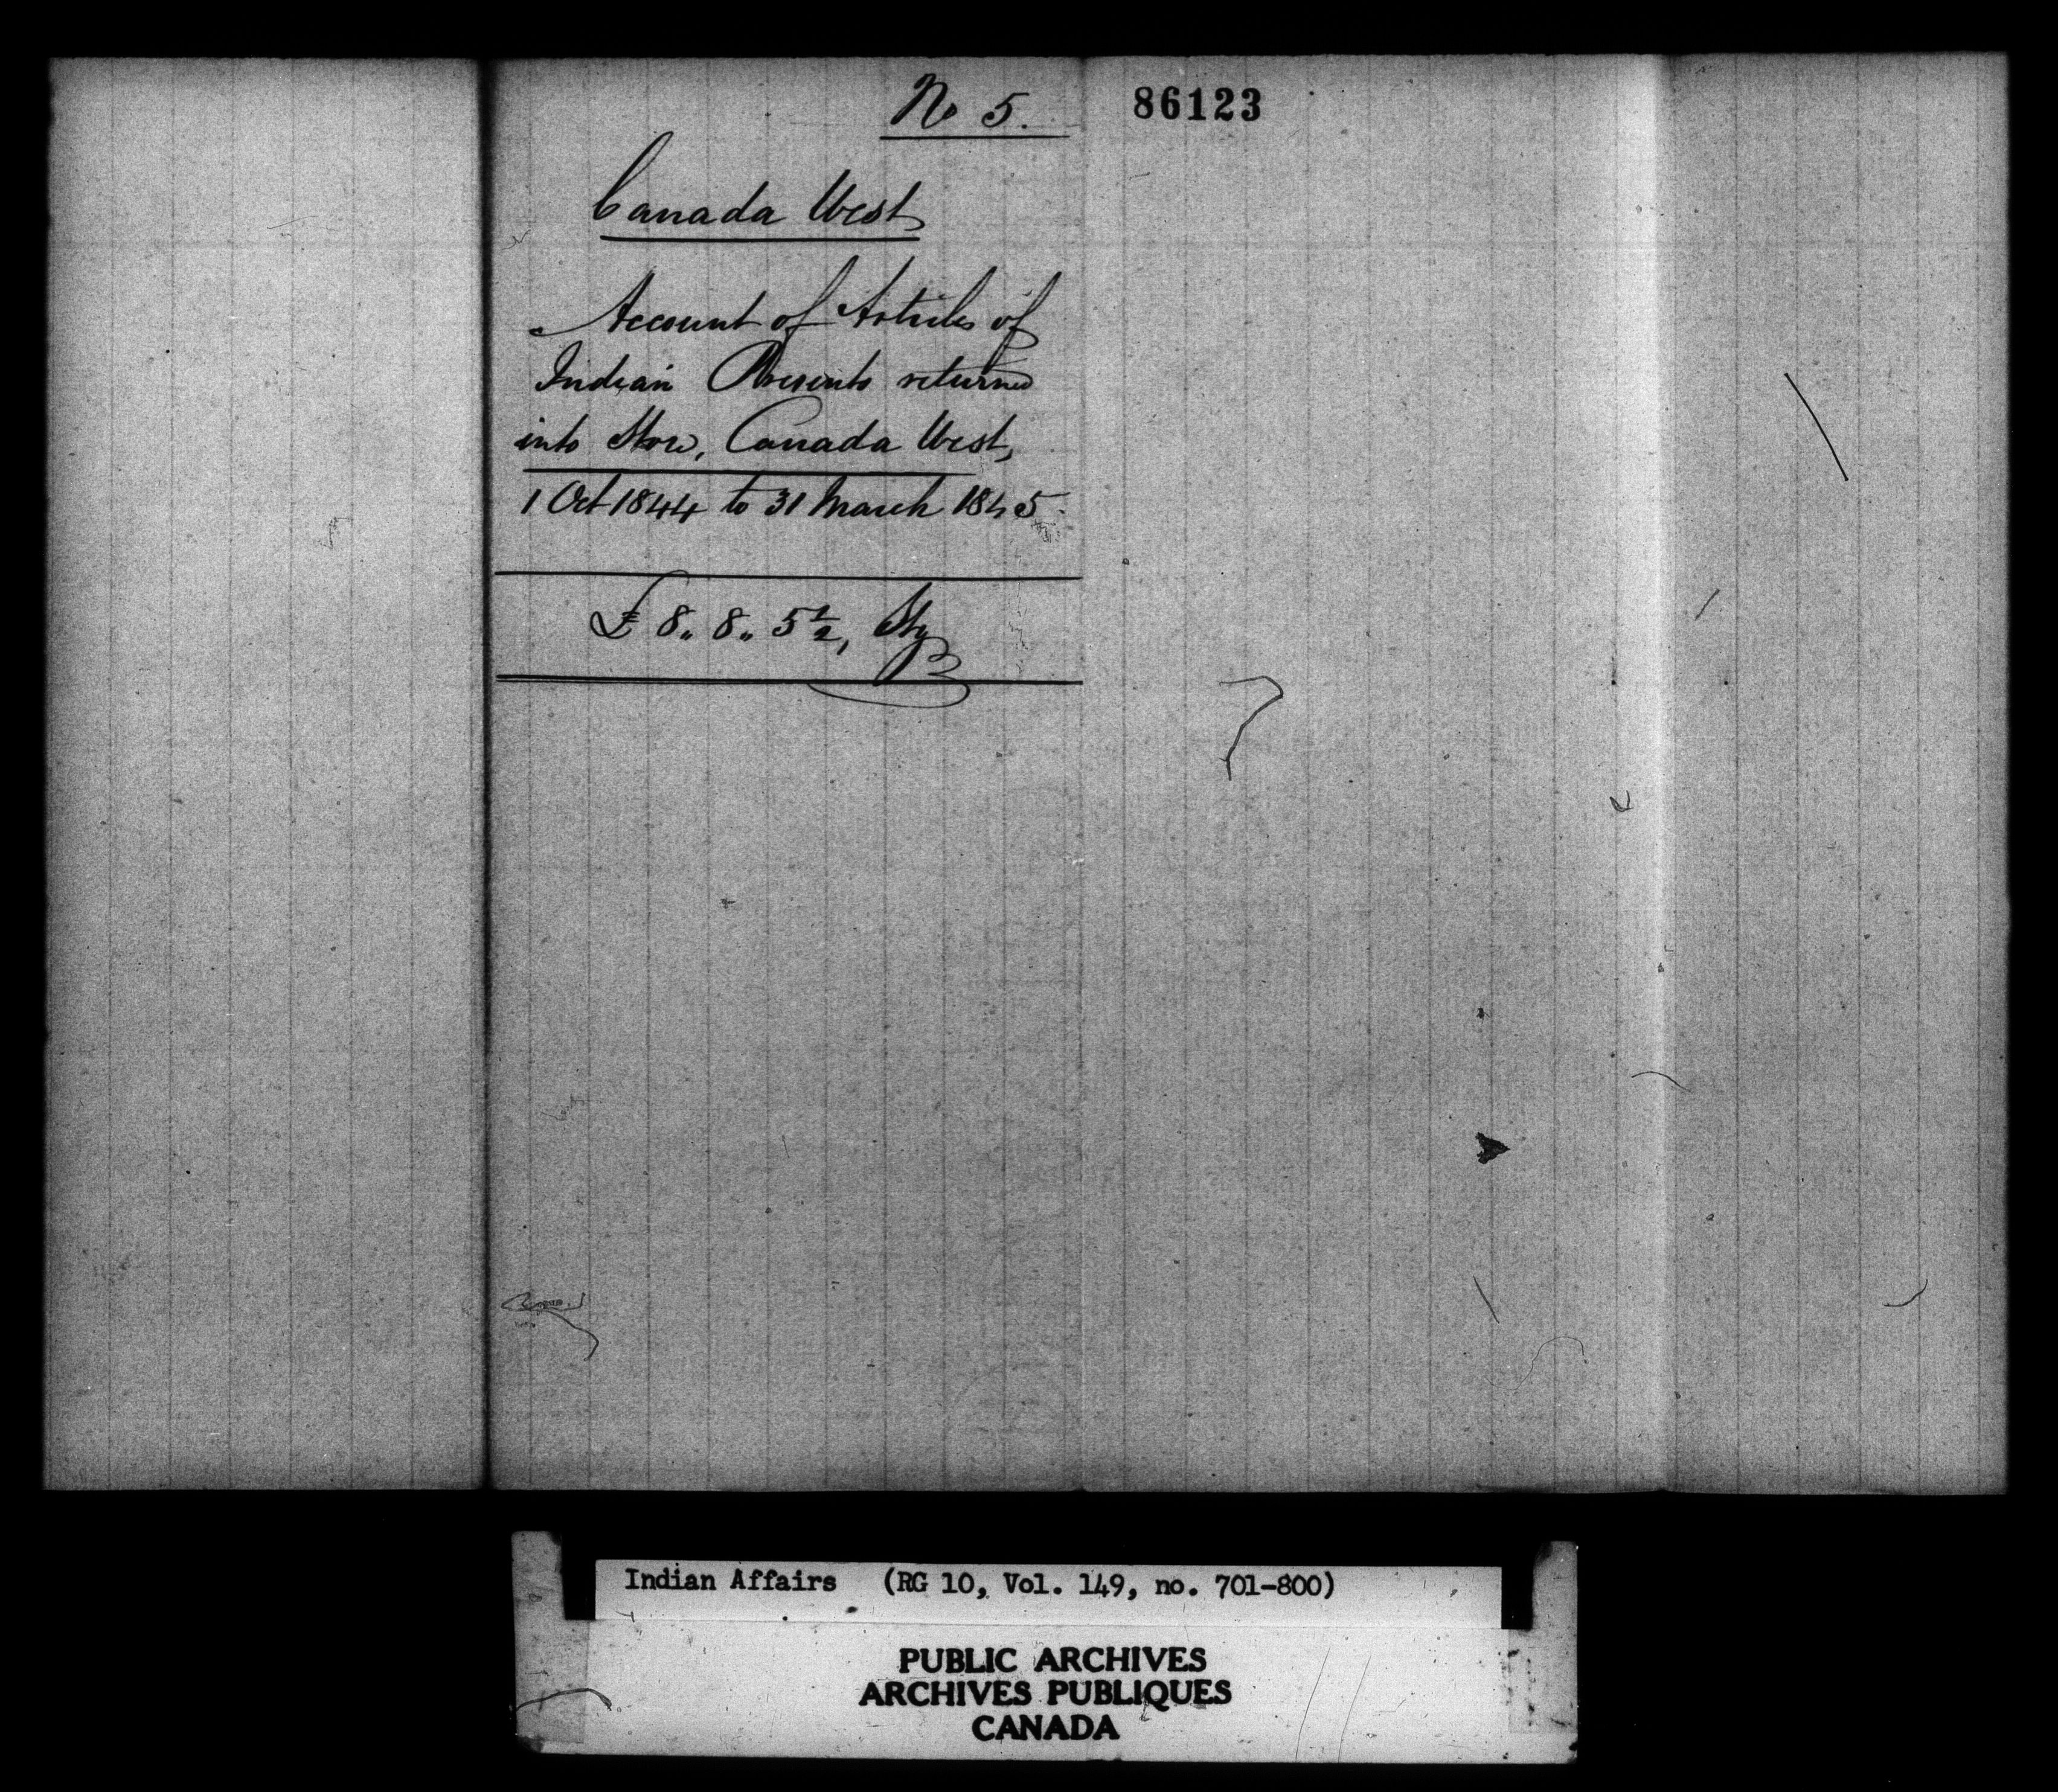 No 5.
86123
Canada West
Account of Articles of
Indian Presents returned
into Store, Canada West,
1 Oct 1844 to 31 March 1845.
£ 8„ 8„ 5 1/2, Stg
Indian Affairs (RG 10, Vol. 149, no. 701-800)
PUBLIC ARCHIVES
ARCHIVES PUBLIQUES
CANADA